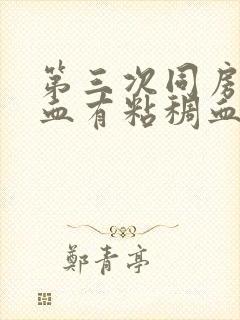 第三次同房
血有粘稠血
鄭青亭